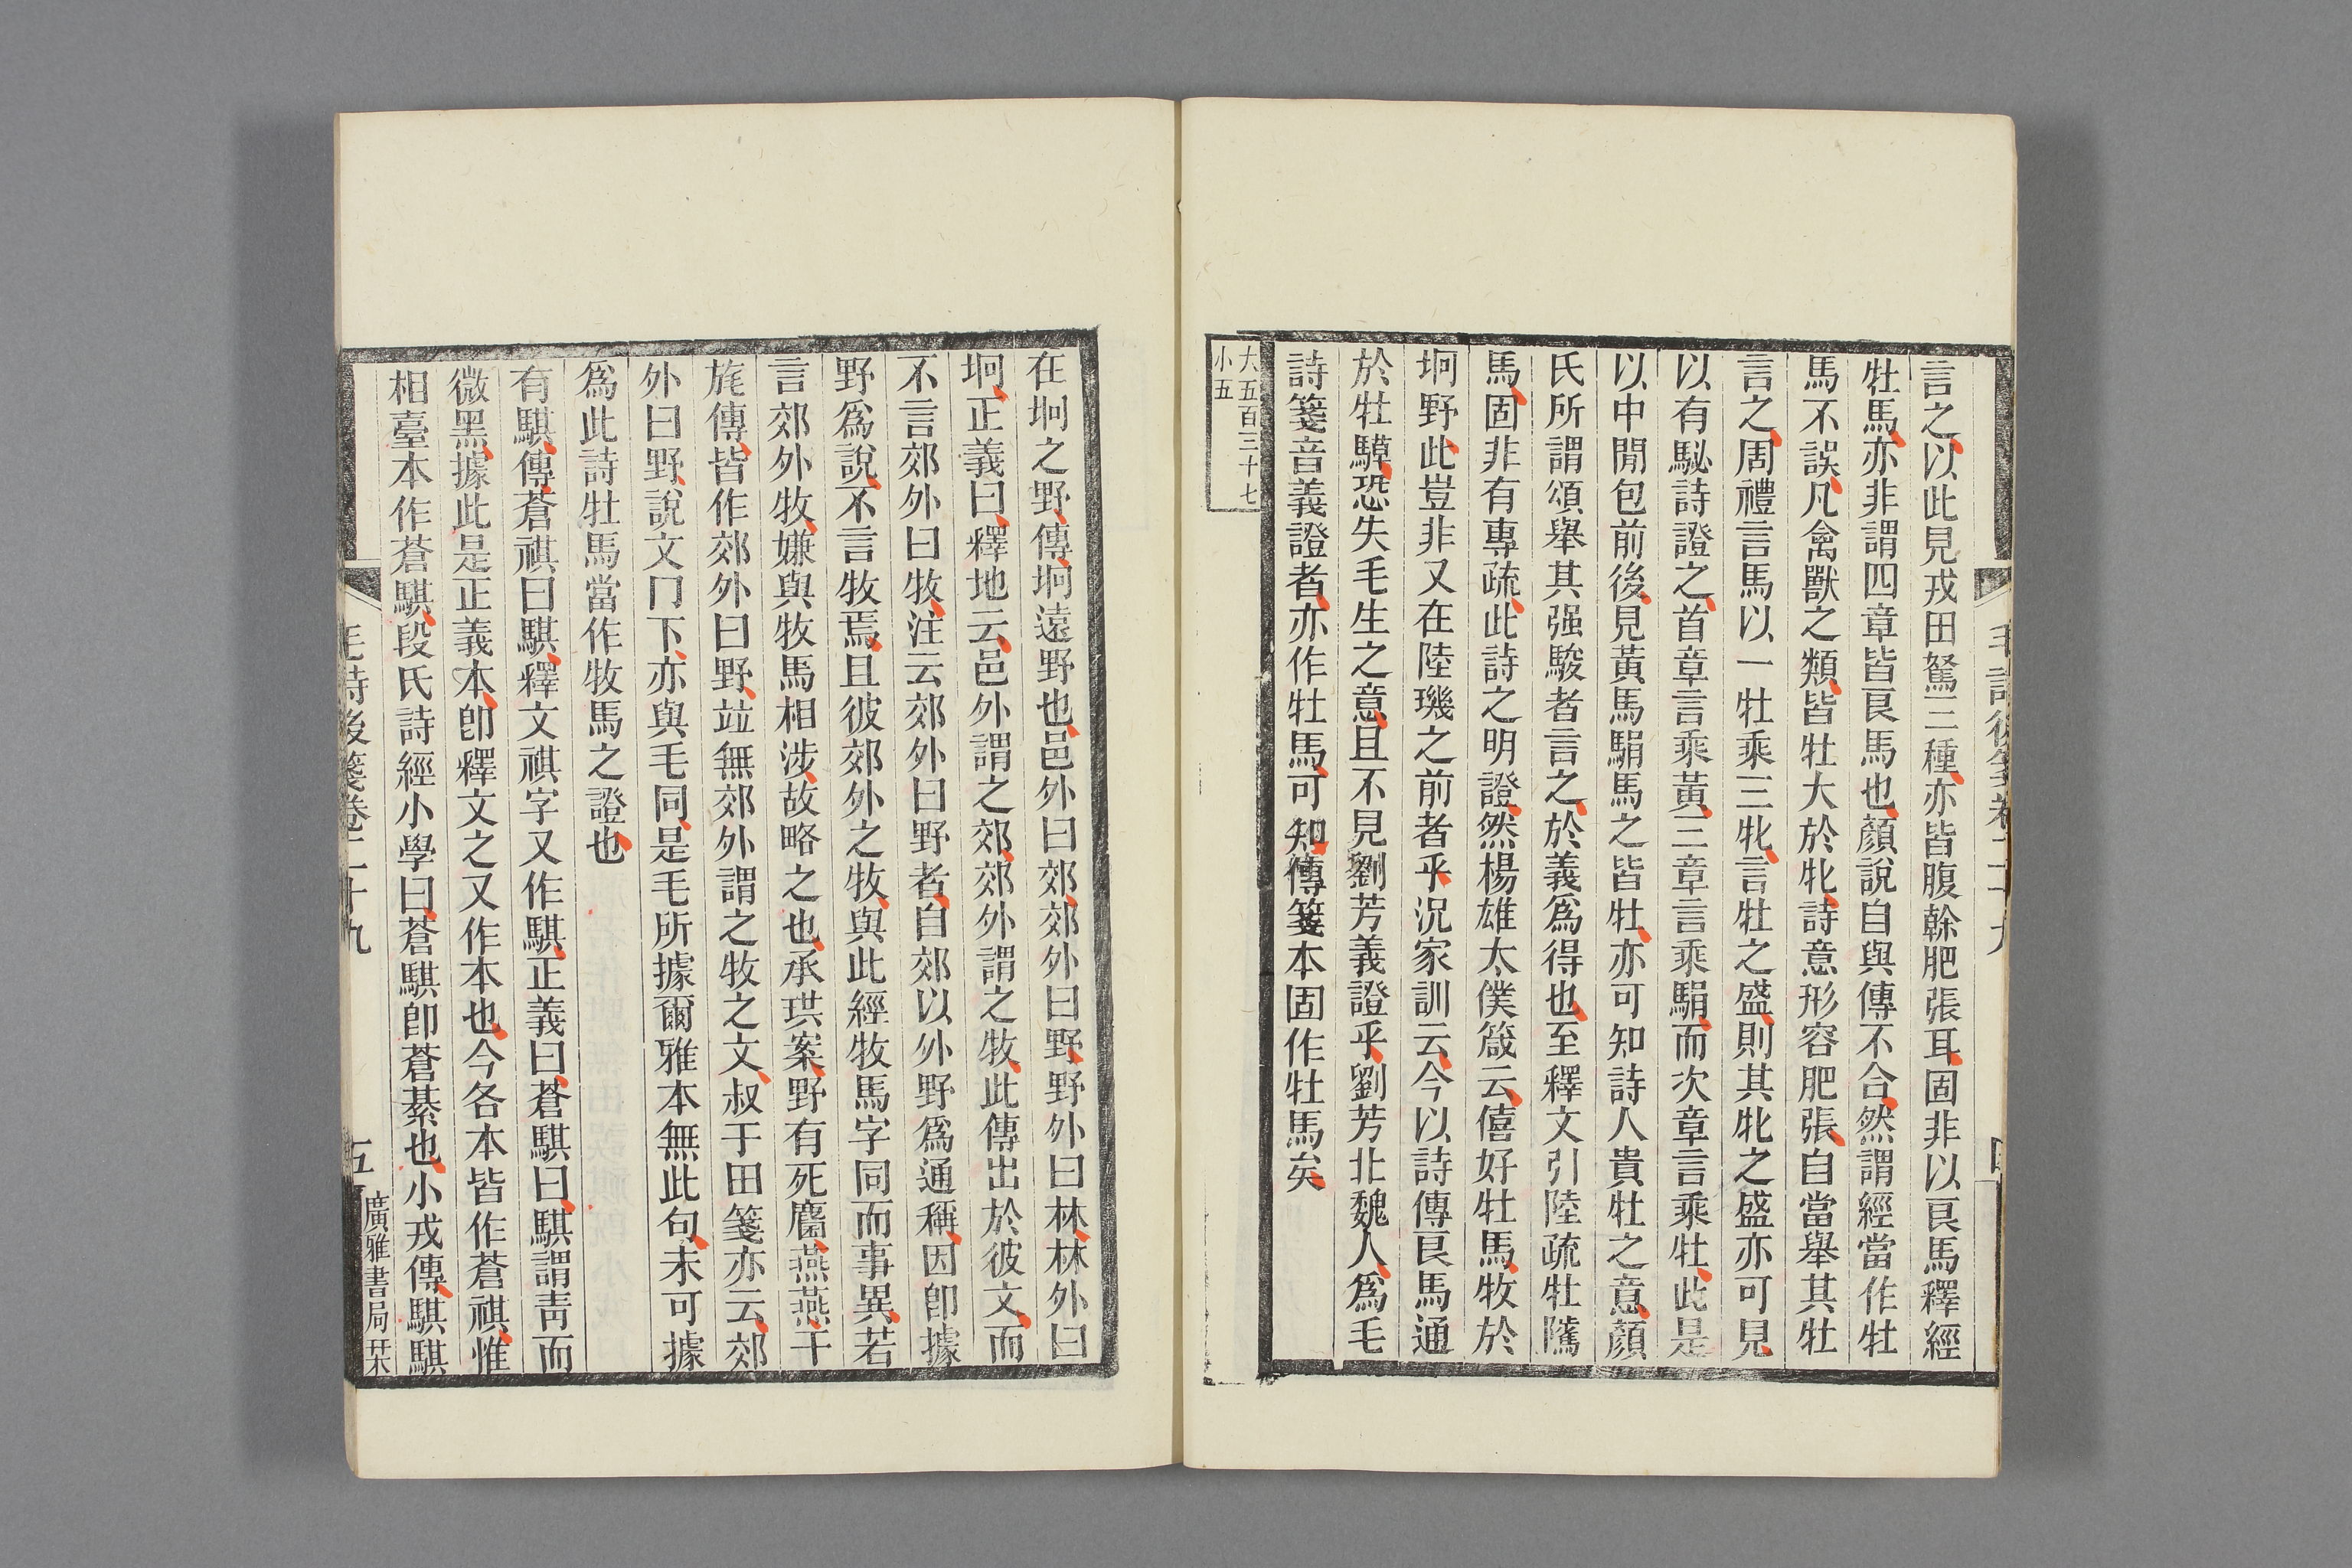 言之以此見戎田駑三種亦皆腹幹肥張耳固非以良馬釋經
牡馬亦非謂四章皆良馬也顏說自與傳不合然謂經當作牡
馬不誤凡禽獸之類皆牡大於牝詩意形容肥張自當舉其牡
言之周禮言馬以一牡乘三牝言牡之盛則其牝之盛亦可見
以有駜詩證之首章言乘黃三章言乘駽而次章言乘牡此是
以中閒包前後見黃馬駽馬之皆牡亦可知詩人貴牡之意顏
氏所謂頌舉其强駿者言之於義爲得也至釋文引陸疏牡騭
馬固非有專疏此詩之明證然楊雄太僕箴云僖好牡馬牧於
坰野此豈非又在陸璣之前者乎況家訓云今以詩傳良馬通
於牡騲恐失毛生之意且不見劉芳義證乎劉芳北魏人爲毛
詩箋音義證者亦作牡馬可知傳箋本固作牡馬矣
大五百三十七
小五
毛詩後箋卷二十九
四
在坰之野傳坰遠野也邑外曰郊郊外曰野野外曰林林外曰
坰正義曰釋地云邑外謂之郊郊外謂之牧此傳出於彼文而
不言郊外曰牧注云郊外曰野者自郊以外野爲通稱因卽據
野爲說不言牧焉且彼郊外之牧與此經牧馬字同而事異若
言郊外牧嫌與牧馬相涉故略之也承珙案野有死麕燕燕干
旄傳皆作郊外曰野竝無郊外謂之牧之文叔于田箋亦云郊
外曰野說文冂下亦與毛同是毛所據爾雅本無此句未可據
爲此詩牡馬當作牧馬之證也
有騏傳蒼祺曰騏釋文祺字又作騏正義曰蒼騏曰騏謂靑而
微黑據此是正義本卽釋文之又作本也今各本皆作蒼祺惟
相臺本作蒼騏段氏詩經小學曰蒼騏卽蒼綦也小戎傳騏騏
毛詩後箋卷二十九
五
廣雅書局栞